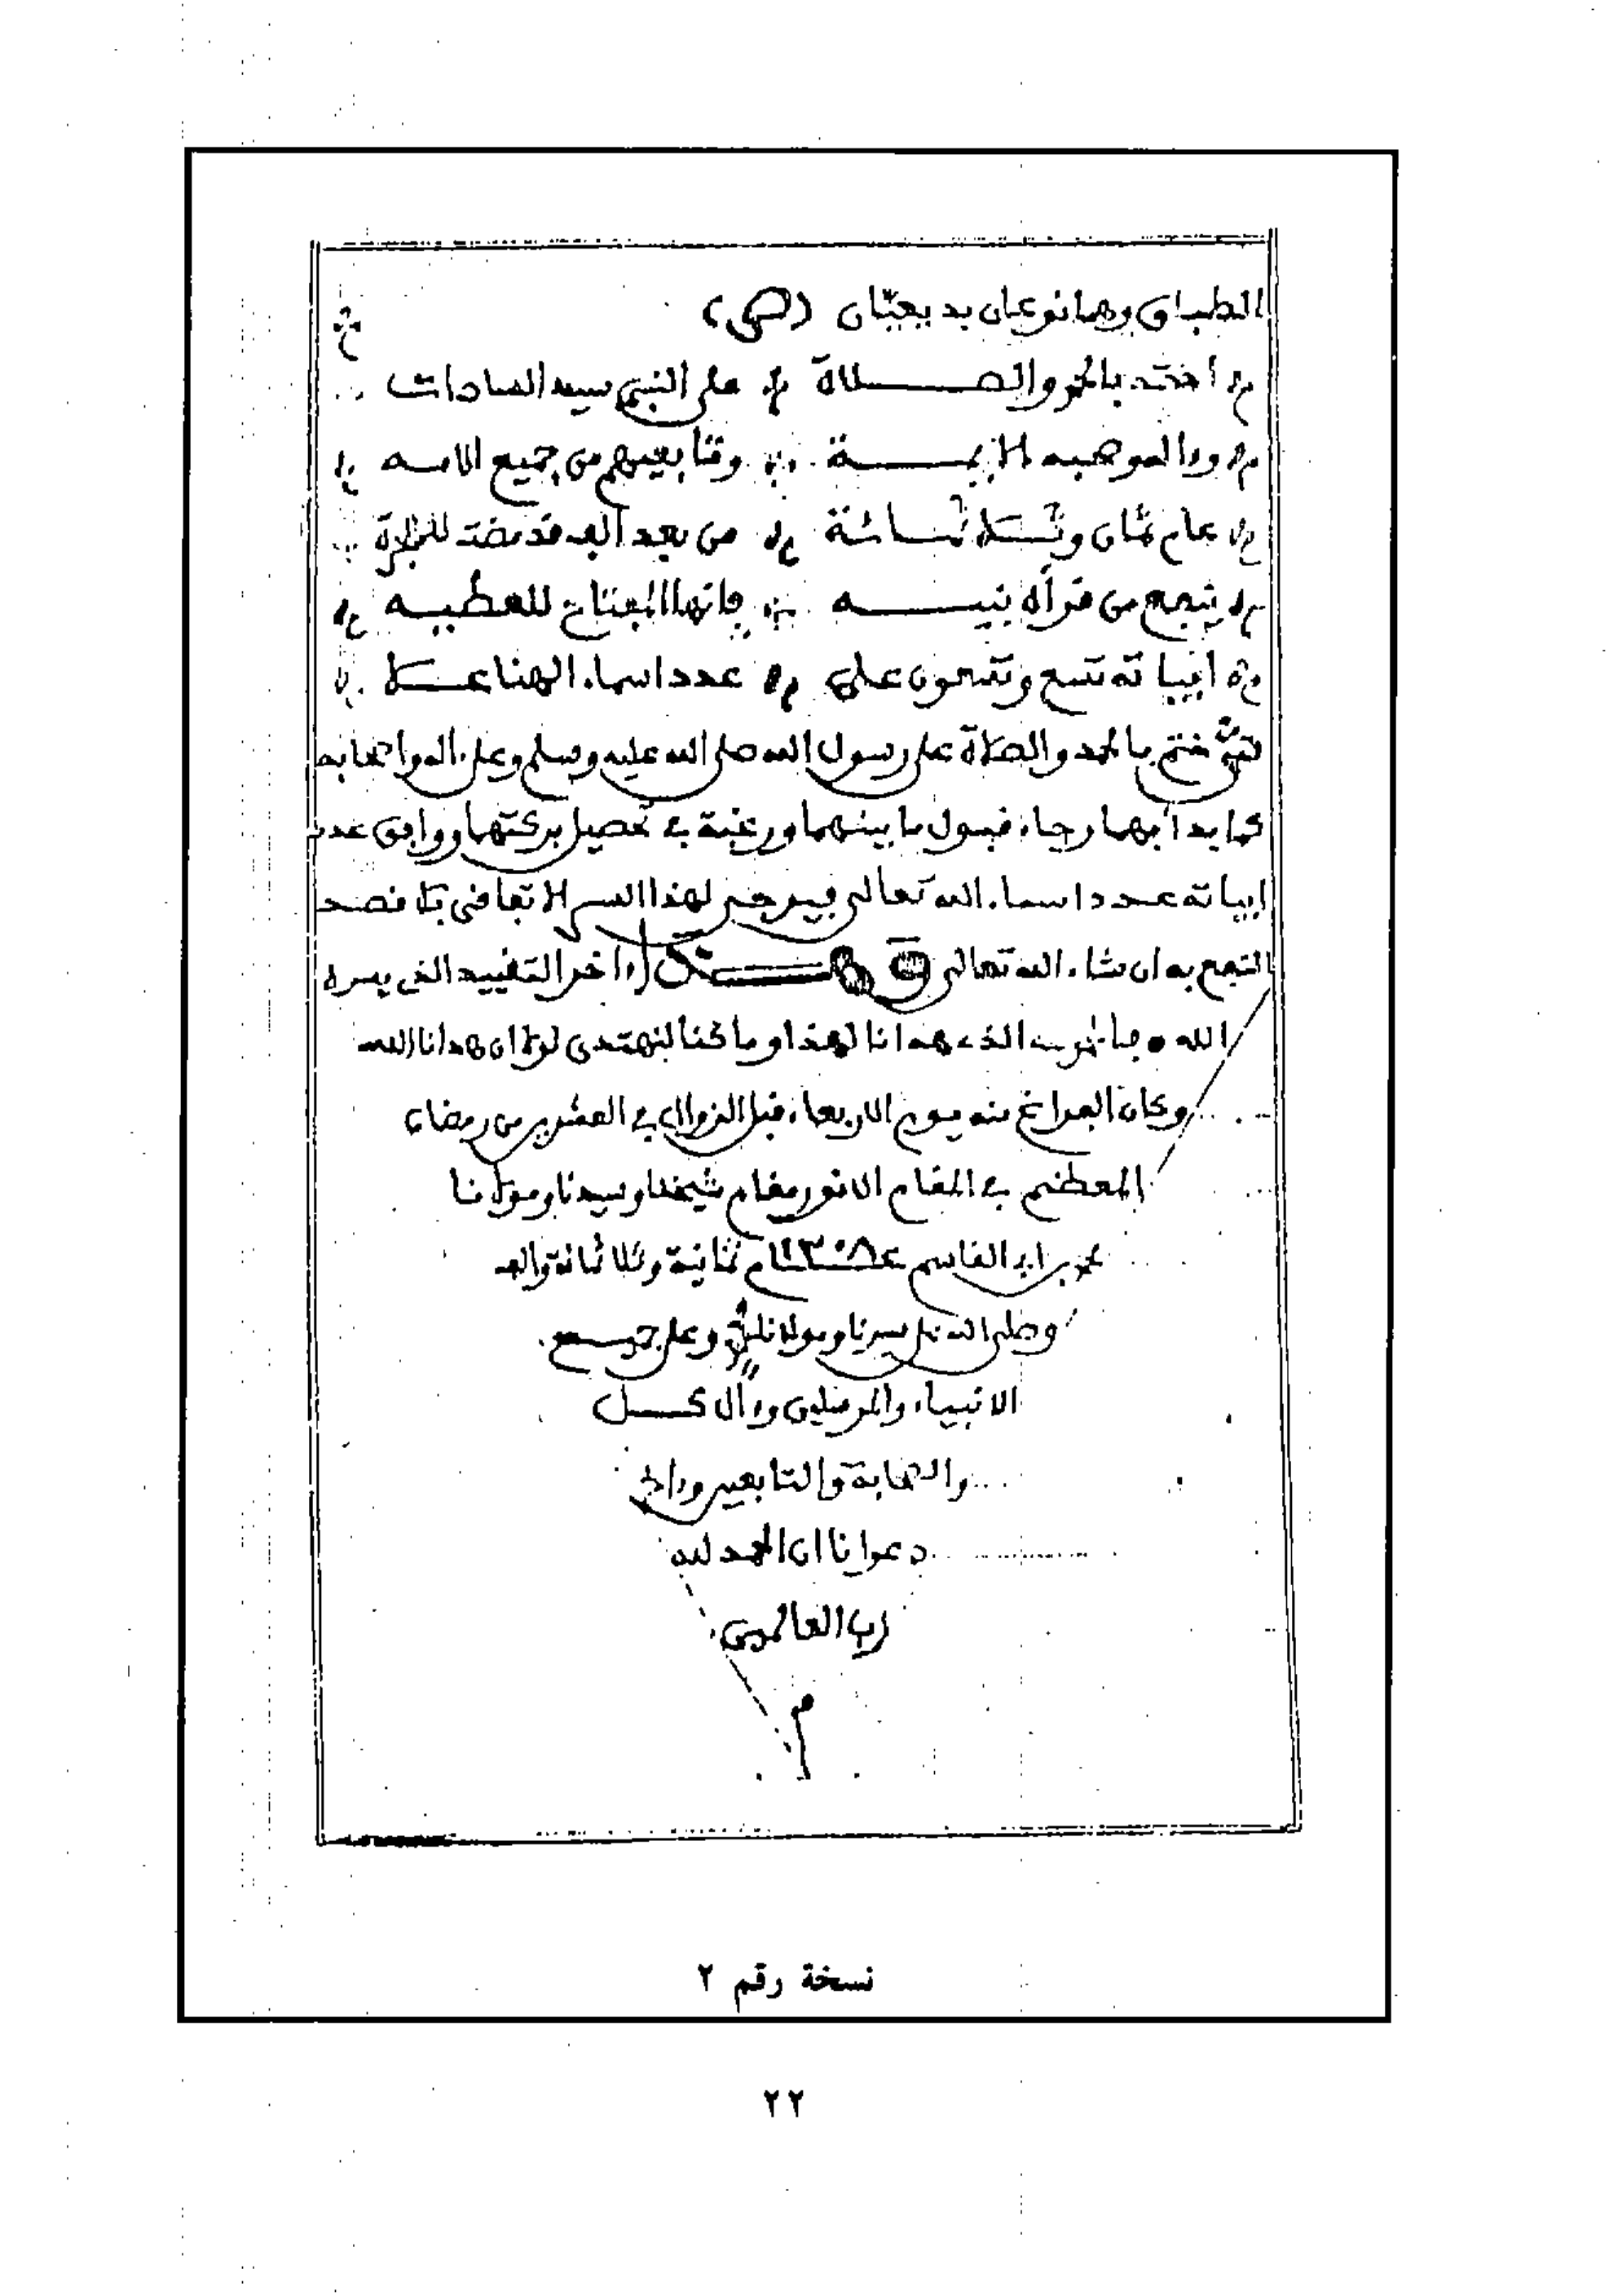 الطباق وهما نوعان بديعيّان (ص)
اختمه بالحمد والصلاة على النبي سيد السادات
وءاله وصحبه الايمة وتابعيهم من جميع الامه
عام ثمان وثلاثمائة من بعد ألف قد مضت للهجرة
ينجع من قرأه بنيه فإنها المفتاح للعطيه
ابياته تسع وتسعون على عدد اسماء الهنا علا
ختم بالحمد والصلاة على رسول الله صلى الله عليه وسلم وعلى اله واصحابه
كما بدأ بهما رجاء قبول ما بينهما ورغبة في تحصيل بركتهما ووافق عدد
ابياته عدد اسماء الله تعالى فيرجى لهذا السر الاتفاقى بلا قصد
النجع به ان شاء الله تعالى ءاخر التقييد الذى يسره
الله والحمد لله الذى هدانا لهذا وما كنا لنهتدى لولا ان هدانا الله
وكان الفراغ منه يوم الاربعاء قبل الزوال في العشرين من رمضان
المعظم في المقام الانور مقام شيخنا وسيدنا ومولانا
محمد بن ابى القاسم عام ١٣٠٨ ثمانية وثلاثمائة والف
وصلى الله على سيدنا ومولانا وعلى جميع
الانبياء والمرسلين وءال كل
والصحابة والتابعين وءاخر
دعوانا ان الحمد لله
رب العالمين
م
نسخة رقم ٢
٢٢